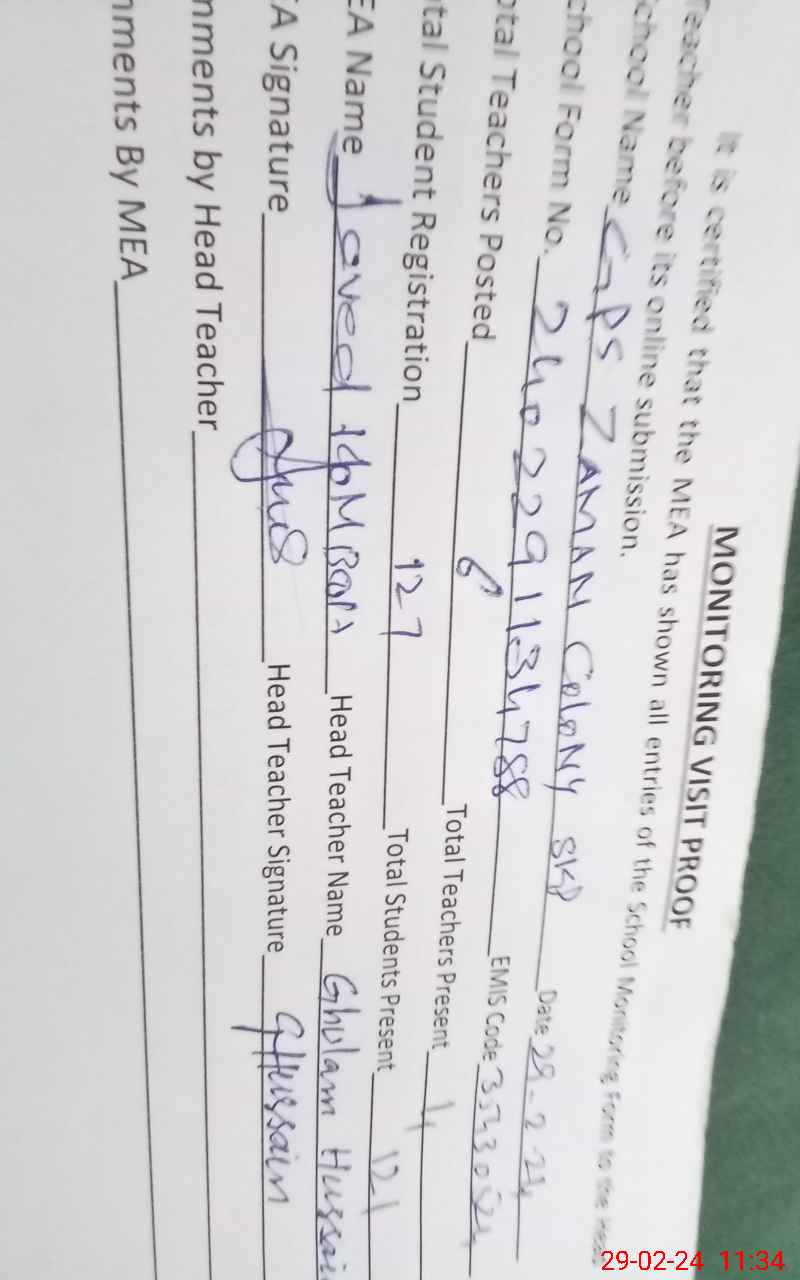 MONITORING VISIT PROOF
It is certified that the MEA has shown all entries of the School Monitoring Form to the Head
Teacher before its online submission.
School Name GPS ZAMAN COLONY SKP Date 29-2-24
School Form No. 2402291134788 EMIS Code
otal Teachers Posted 6 Total Teachers Present 4
tal Student Registration 127 Total Students Present 121
EA Name Javed Head Teacher Name Ghulam Hussai
EA Signature Head Teacher Signature GHussain
nments by Head Teacher
nments By MEA
29-02-24 11:34